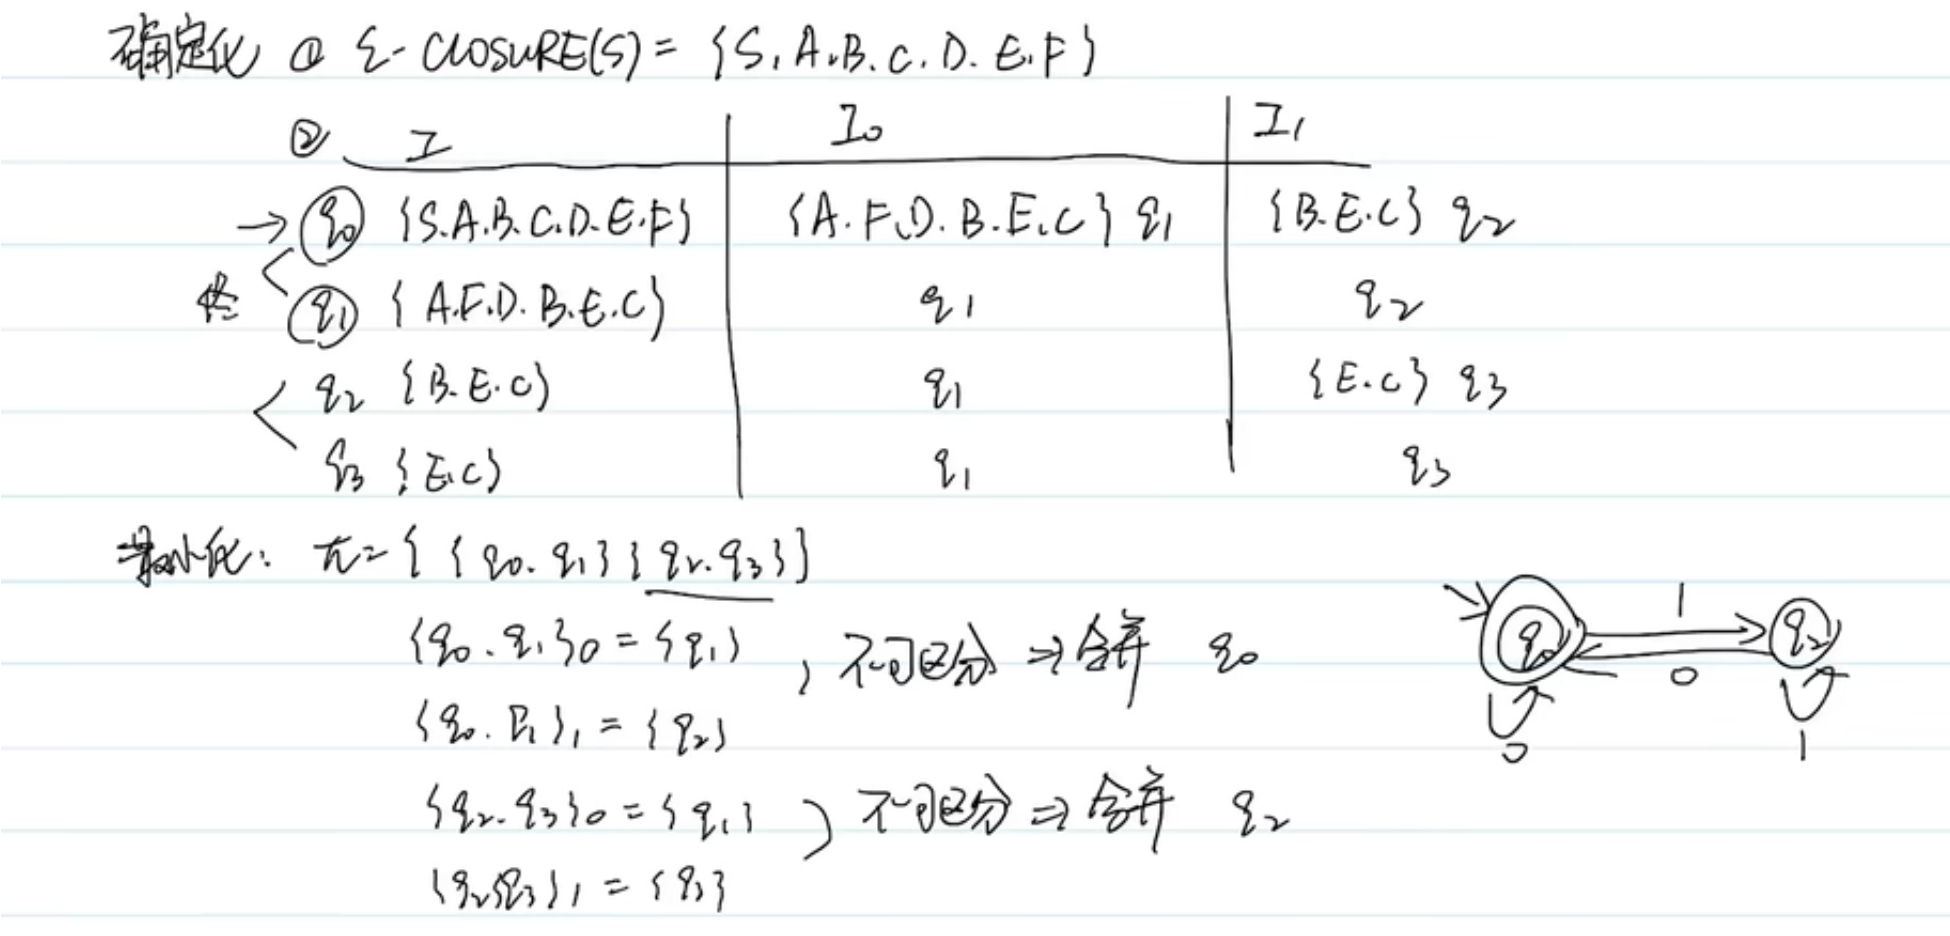 确定化 ① ε-CLOSURE(S) = {S.A.B.C.D.E.F}
② I I0 I1
→ q0 {S.A.B.C.D.E.F} {A.F.D.B.E.C} q1 {B.E.C} q2
终 q1 {A.F.D.B.E.C} q1 q2
q2 {B.E.C} q1 {E.C} q3
q3 {E.C} q1 q3
最小化: π = { {q0.q1} {q2.q3} }
{q0.q1}0 = {q1} , 不可区分 ⇒ 合并 q0
{q0.q1}1 = {q2}
{q2.q3}0 = {q1} ) 不可区分 ⇒ 合并 q2
{q2q3}1 = {q3}
q0 1 q2
0
0 1